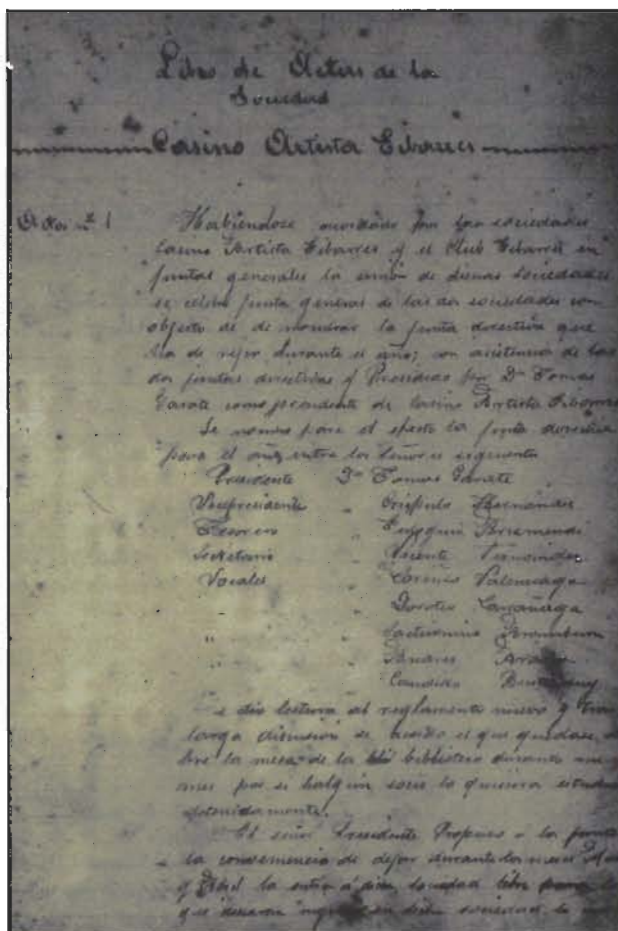 Libro de Actas de la
Sociedad
Casino Artista Eibarres
Acta nº 1 Habiendose acordado por las sociedades
Casino Artista Eibarres y el Club Eibarres en
juntas generales la unión de dichas sociedades
se celebró junta general de las dos sociedades con
objeto de de nombrar la junta directiva que
ha de regir durante el año; con asistencia de las
dos juntas directivas y Presididas por Dn Tomas
Garate como presidente de Casino Artista
Se nombró para el efecto la junta directiva
para el año, entre los Señores siguientes
Presidente Dn Tomas Garate
Vicepresidente " Crispulo Hernandez
Tesorero " Aramendi
Secretario " Vicente Fernandez
Vocales " Valenciaga
" Doroteo
" " Saturnino Aramburu
" " Andres
Candido
e dio lectura al reglamento nuevo y tras
larga discusión se acordó el que quedase
bre la mesa de la biblioteca durante
mes por si halguin socio lo quisiera estudiar
detenidamente.
El señor Presidente Propuso a la junta
la conveniencia de dejar durante los meses
y Abril la entra á dicha sociedad libre para
que desean en dicha sociedad